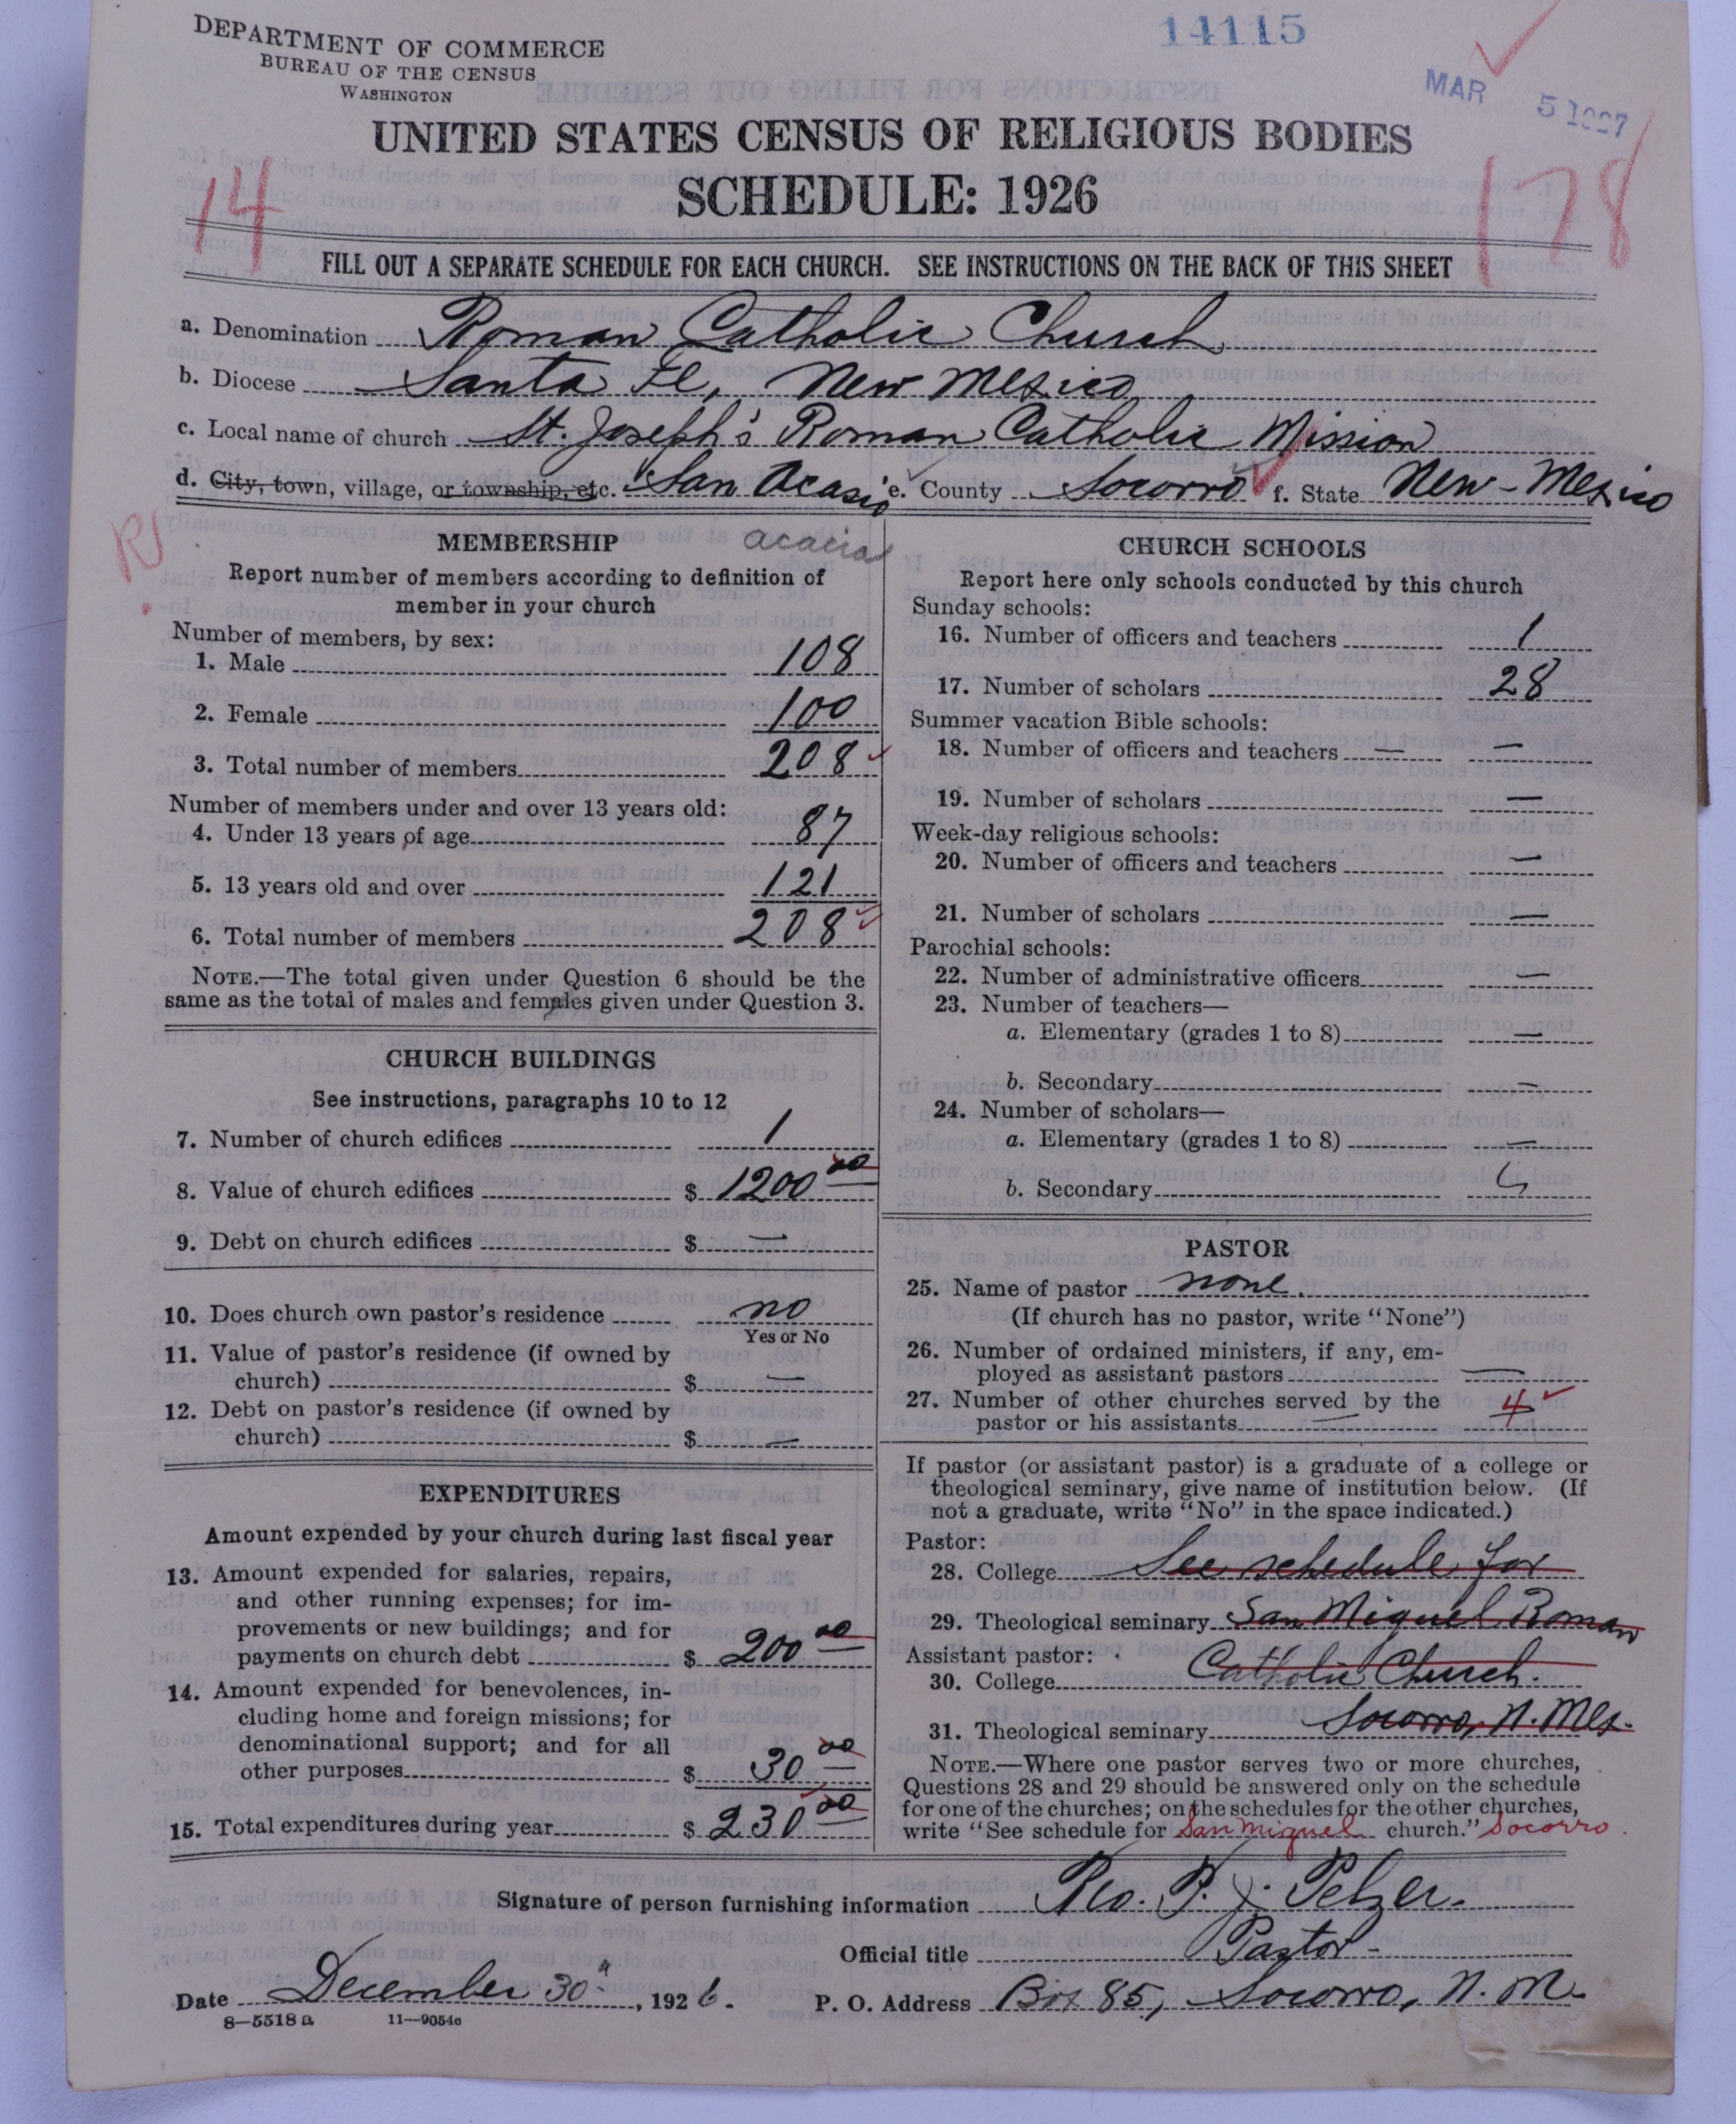 14115
DEPARTMENT OF COMMERCE
BUREAU OF THE CENSUS
WASHINGTON
MAR 5 1927
UNITED STATES CENSUS OF RELIGIOUS BODIES
SCHEDULE: 1926
14
178
FILL OUT A SEPARATE SCHEDULE FOR EACH CHURCH. SEE INSTRUCTIONS ON THE BACK OF THIS SHEET
a. Denomination Roman Catholic Church
b. Diocese Santa Fe, New Mexico
c. Local name of church St. Joseph's Roman Catholic Mission
d. City, town, village, or township, etc. San Acasio e. County Socorro f. State New-Mexico
acacia
MEMBERSHIP
Report number of members according to definition of
member in your church
Number of members, by sex:
1. Male 108
2. Female 100
3. Total number of members 208
Number of members under and over 13 years old:
4. Under 13 years of age 87
5. 13 years old and over 121
6. Total number of members 208
NOTE.—The total given under Question 6 should be the
same as the total of males and females given under Question 3.
CHURCH BUILDINGS
See instructions, paragraphs 10 to 12
7. Number of church edifices 1
8. Value of church edifices $ 1200 00
9. Debt on church edifices $ —
10. Does church own pastor's residence no
Yes or No
11. Value of pastor's residence (if owned by
church) $ —
12. Debt on pastor's residence (if owned by
church) $ —
EXPENDITURES
Amount expended by your church during last fiscal year
13. Amount expended for salaries, repairs,
and other running expenses; for im-
provements or new buildings; and for
payments on church debt $ 200 00
14. Amount expended for benevolences, in-
cluding home and foreign missions; for
denominational support; and for all
other purposes $ 30 00
15. Total expenditures during year $ 230 00
CHURCH SCHOOLS
Report here only schools conducted by this church
Sunday schools:
16. Number of officers and teachers 1
17. Number of scholars 28
Summer vacation Bible schools:
18. Number of officers and teachers — —
19. Number of scholars —
Week-day religious schools:
20. Number of officers and teachers —
21. Number of scholars —
Parochial schools:
22. Number of administrative officers —
23. Number of teachers—
a. Elementary (grades 1 to 8) —
b. Secondary —
24. Number of scholars—
a. Elementary (grades 1 to 8) —
b. Secondary
PASTOR
25. Name of pastor none.
(If church has no pastor, write "None")
26. Number of ordained ministers, if any, em-
ployed as assistant pastors —
27. Number of other churches served by the
pastor or his assistants — 4
If pastor (or assistant pastor) is a graduate of a college or
theological seminary, give name of institution below. (If
not a graduate, write "No" in the space indicated.)
Pastor:
28. College See schedule for
29. Theological seminary San Miguel Roman
Assistant pastor:
30. College Catholic Church.
31. Theological seminary Socorro, N. Mex.
NOTE.—Where one pastor serves two or more churches,
Questions 28 and 29 should be answered only on the schedule
for one of the churches; on the schedules for the other churches,
write "See schedule for San Miguel church." Socorro
Signature of person furnishing information Rev. P. J. Pelzer.
Official title Pastor
Date December 30", 1926. P. O. Address Box 85, Socorro, N. M.
8—5518 a 11—9054c